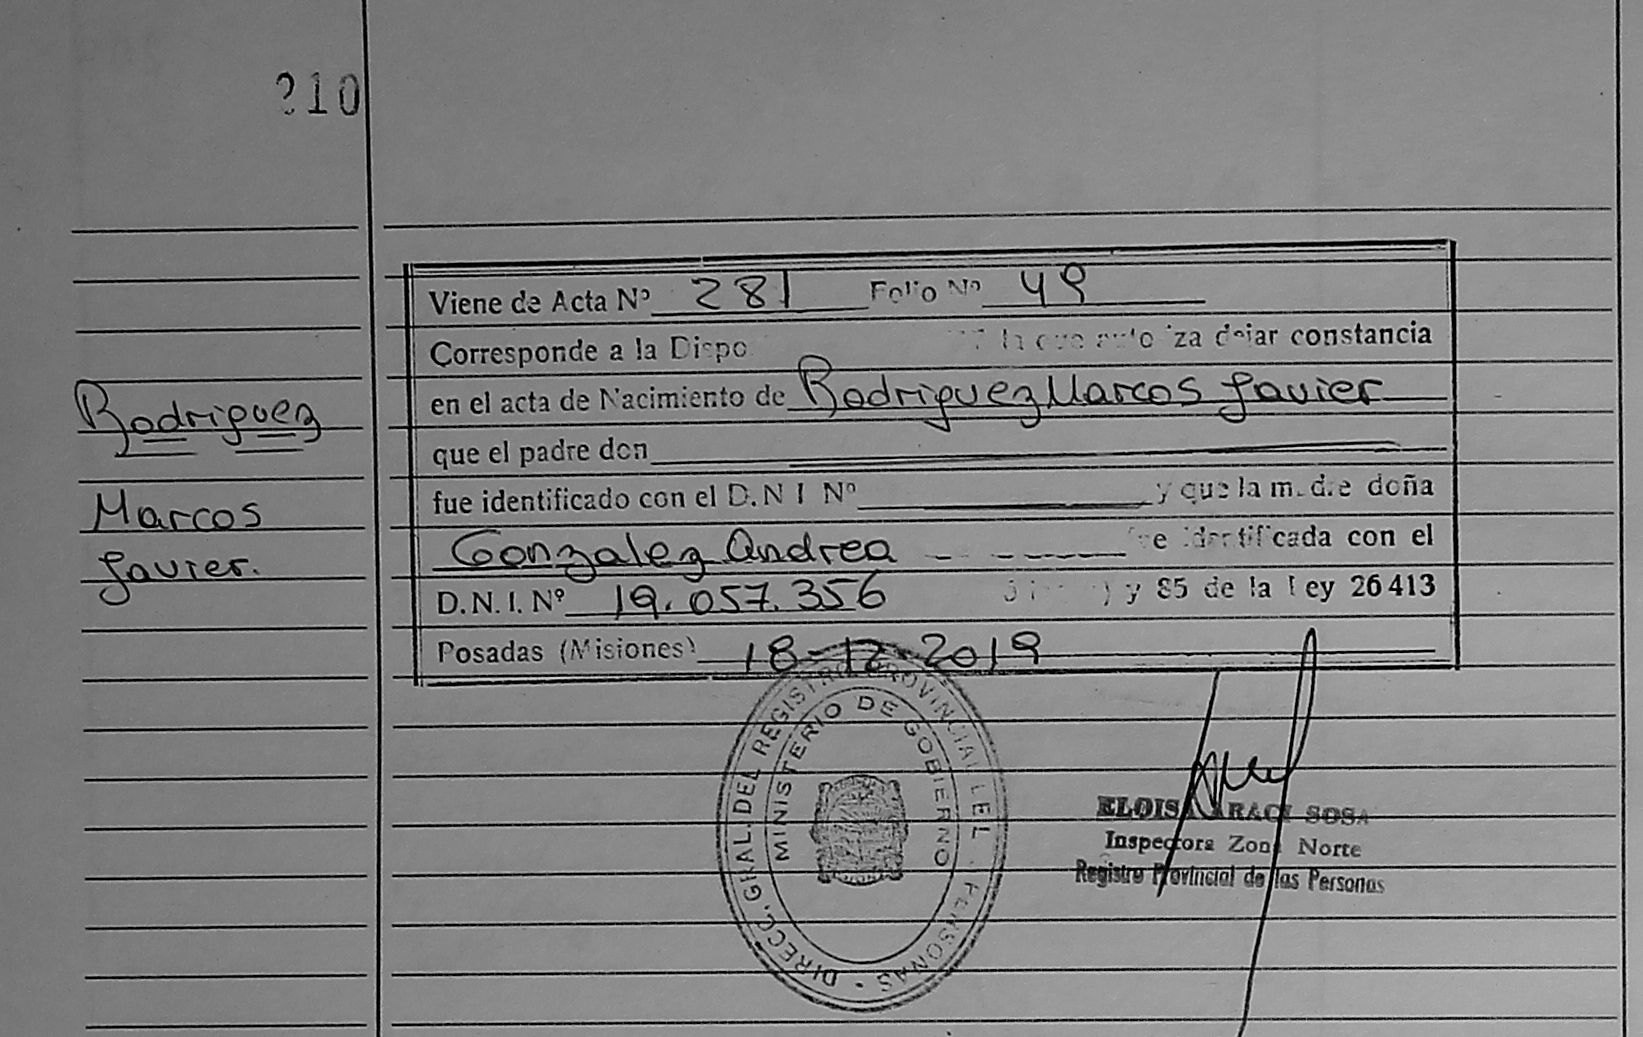 210
Viene de Acta Nº 281 Folio Nº 49
Corresponde a la Dispo la que autoriza dejar constancia
en el acta de Nacimiento de Rodriguez Marcos Javier
que el padre don
fue identificado con el D.N I Nº y que la madre doña
Gonzalez Andrea fue identificada con el
D.N.I. Nº 19.057.356 y 85 de la Ley 26413
Posadas (Misiones) 18-12-2019
Rodriguez
Marcos
Javier.
DIRECC. GRAL. DEL REGISTRO PROVINCIAL DE L PERSONAS
MINISTERIO DE GOBIERNO
ELOISA ARACI SOSA
Inspectora Zona Norte
Registro Provincial de las Personas